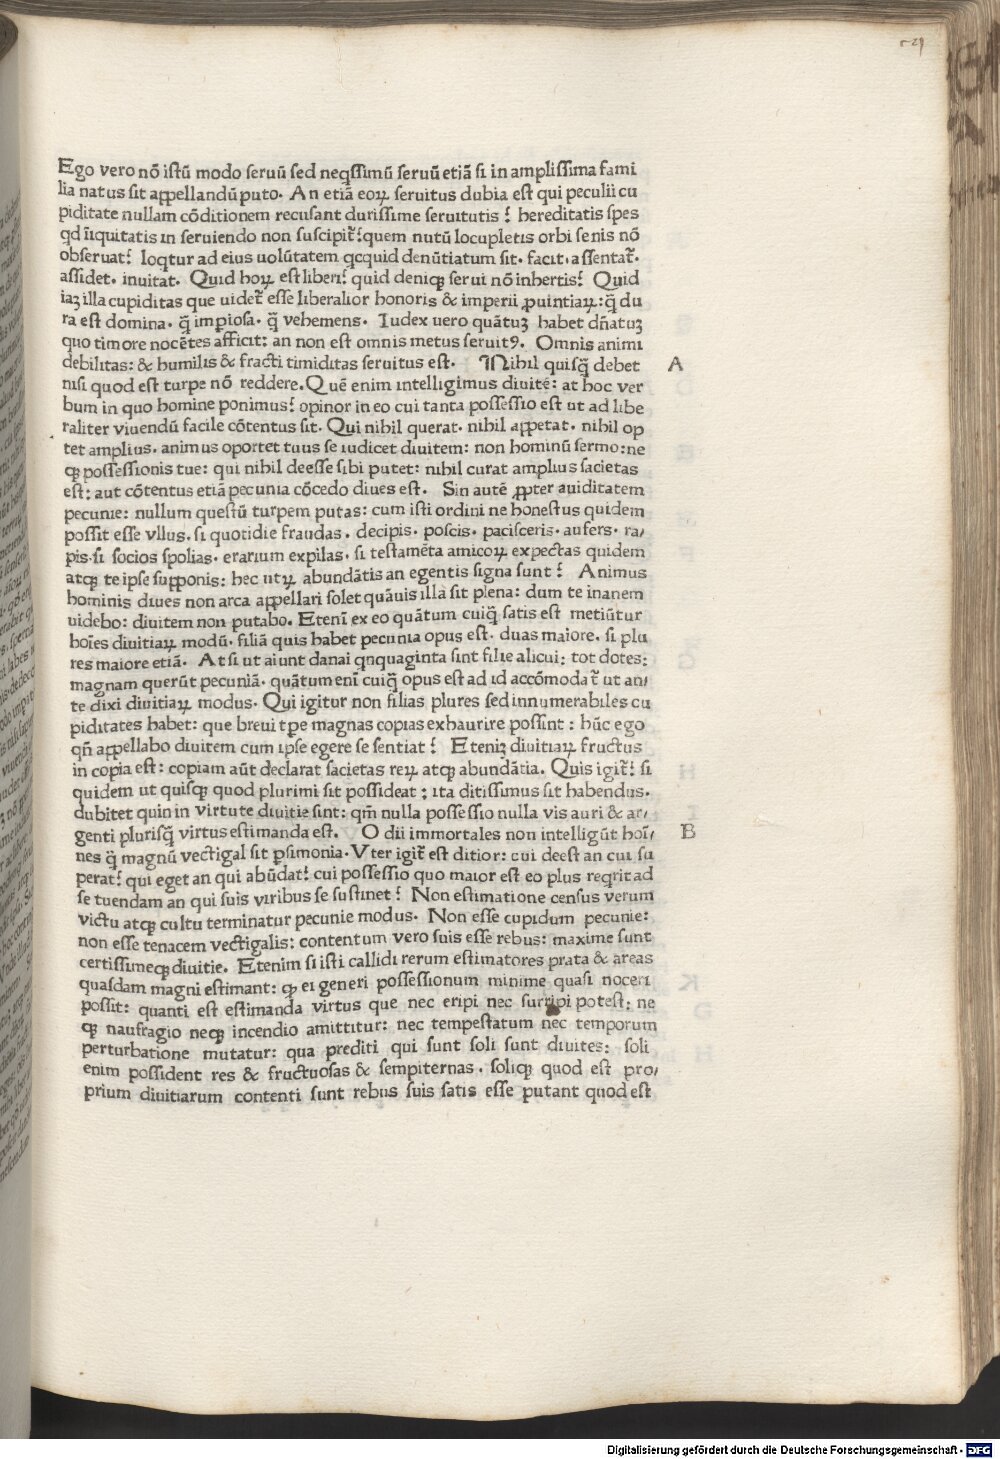 Ego vero nō istū modo seruū sed neqssimū seruū etiā si in amplissima fami
lia natus sit appellandū puto. An etiā eoꝝ seruitus dubia est qui peculii cu
piditate nullam cōditionem recusant durissime seruitutis? hereditatis spes
qd īiquitatis in seruiendo non suscipit̄? quem nutū locupletis orbi senis nō
obseruat? loqtur ad eius uolūtatem qcquid denūtiatum sit. facit. assentat̄.
assidet. inuitat. Quid hoꝝ est liberi? quid deniqꝫ serui nō inhertis? Quid
iaꝫ illa cupiditas que uidet̄ esse liberalior honoris & imperii ꝓuintiaꝝ: q̄ du
ra est domina. q̄ impiosa. q̄ vehemens. Iudex uero quātuꝫ habet dn̄atuꝫ
quo timore nocētes afficit: an non est omnis metus seruitꝰ. Omnis animi
debilitas: & humilis & fracti timiditas seruitus est. Nihil quisq̄ debet A
nisi quod est turpe nō reddere. Quē enim intelligimus diuitē: at hoc ver
bum in quo homine ponimus? opinor in eo cui tanta possessio est ut ad libe
raliter viuendū facile cōtentus sit. Qui nihil querat. nihil appetat. nihil op
tet amplius. animus oportet tuus se iudicet diuitem: non hominū sermo: ne
qꝫ possessionis tue: qui nihil deesse sibi putet: nihil curat amplius sacietas
est: aut cōtentus etiā pecunia cōcedo diues est. Sin autē ꝓpter auiditatem
pecunie: nullum questū turpem putas: cum isti ordini ne honestus quidem
possit esse vllus. si quotidie fraudas. decipis. poscis. pacisceris. aufers. ra/
pis. si socios spolias. erarium expilas. si testamēta amicoꝝ expectas quidem
atqꝫ te ipse supponis: hec utꝝ abundātis an egentis signa sunt? Animus
hominis diues non arca appellari solet quāuis illa sit plena: dum te inanem
uidebo: diuitem non putabo. Etenī ex eo quātum cuiq̄ satis est metiūtur
hoīes diuitiaꝝ modū. filiā quis habet pecunia opus est. duas maiore. si plu
res maiore etiā. At si ut aiunt danai qnquaginta sint filie alicui: tot dotes:
magnam querūt pecuniā. quātum enī cuiq̄ opus est ad id accōmodat̄ ut an/
te dixi diuitiaꝝ modus. Qui igitur non filias plures sed innumerabiles cu
piditates habet: que breui tꝑe magnas copias exhaurire possint: hūc ego
qn̄ appellabo diuitem cum ipse egere se sentiat? Eteniꝫ diuitiaꝝ fructus
in copia est: copiam aūt declarat sacietas reꝝ atqꝫ abundātia. Quis igit̄? si
quidem ut quisqꝫ quod plurimi sit possideat: ita ditissimus sit habendus.
dubitet quin in virtute diuitie sint: qm̄ nulla possessio nulla vis auri & ar/
genti plurisq̄ virtus estimanda est. O dii immortales non intelligūt hoī/ B
nes q̄ magnū vectigal sit ꝑsimonia. Vter igit̄ est ditior: cui deest an cui su
perat? qui eget an qui abūdat? cui possessio quo maior est eo plus reqrit ad
se tuendam an qui suis viribus se sustinet? Non estimatione census verum
victu atqꝫ cultu terminatur pecunie modus. Non esse cupidum pecunie:
non esse tenacem vectigalis: contentum vero suis esse rebus: maxime sunt
certissimeqꝫ diuitie. Etenim si isti callidi rerum estimatores prata & areas
quasdam magni estimant: qꝫ ei generi possessionum minime quasi noceri
possit: quanti est estimanda virtus que nec eripi nec surripi potest: ne
qꝫ naufragio neqꝫ incendio amittitur: nec tempestatum nec temporum
perturbatione mutatur: qua prediti qui sunt soli sunt diuites: soli
enim possident res & fructuosas & sempiternas. soliqꝫ quod est pro/
prium diuitiarum contenti sunt rebus suis satis esse putant quod est
Digitalisierung gefördert durch die Deutsche Forschungsgemeinschaft - DFG